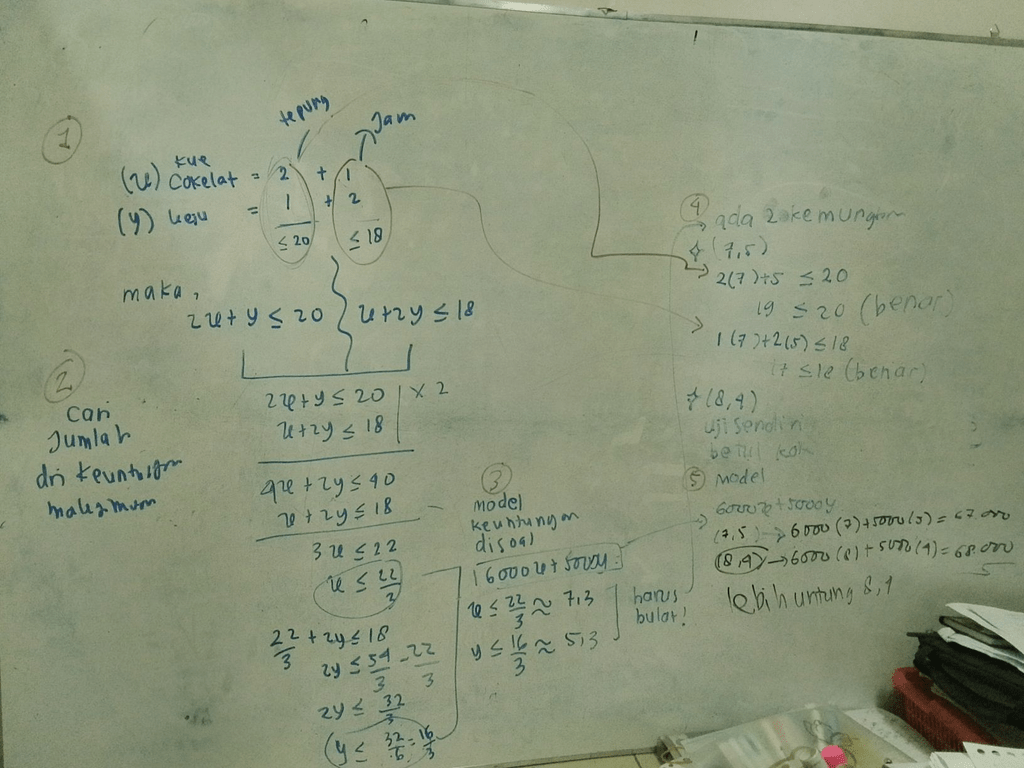 1
tepung
Jam
(x) kue Cokelat = 2 + 1
(y) keju = 1 + 2
≤ 20 ≤ 18
maka,
2x + y ≤ 20 x + 2y ≤ 18
2
cari
Jumlah
dri keuntungan
maksimum
2x + y ≤ 20 | x 2
x + 2y ≤ 18
4x + 2y ≤ 40
x + 2y ≤ 18 -
3x ≤ 22
x ≤ 22/3
22/3 + 2y ≤ 18
2y ≤ 54/3 - 22/3
2y ≤ 32/3
y ≤ 32/6 = 16/3
3
model
keuntungan
disoal
6000x + 5000y
x ≤ 22/3 ≈ 7,3
y ≤ 16/3 ≈ 5,3
harus
bulat!
4
ada 2 kemungkinan
(7,5)
2(7)+5 ≤ 20
19 ≤ 20 (benar)
1(7)+2(5) ≤ 18
17 ≤ 18 (benar)
(8,4)
uji sendiri
betul kok
5 model
6000x + 5000y
(7,5) → 6000(7)+5000(5) = 67.000
(8,4) → 6000(8)+5000(4) = 68.000
lebih untung 8,4